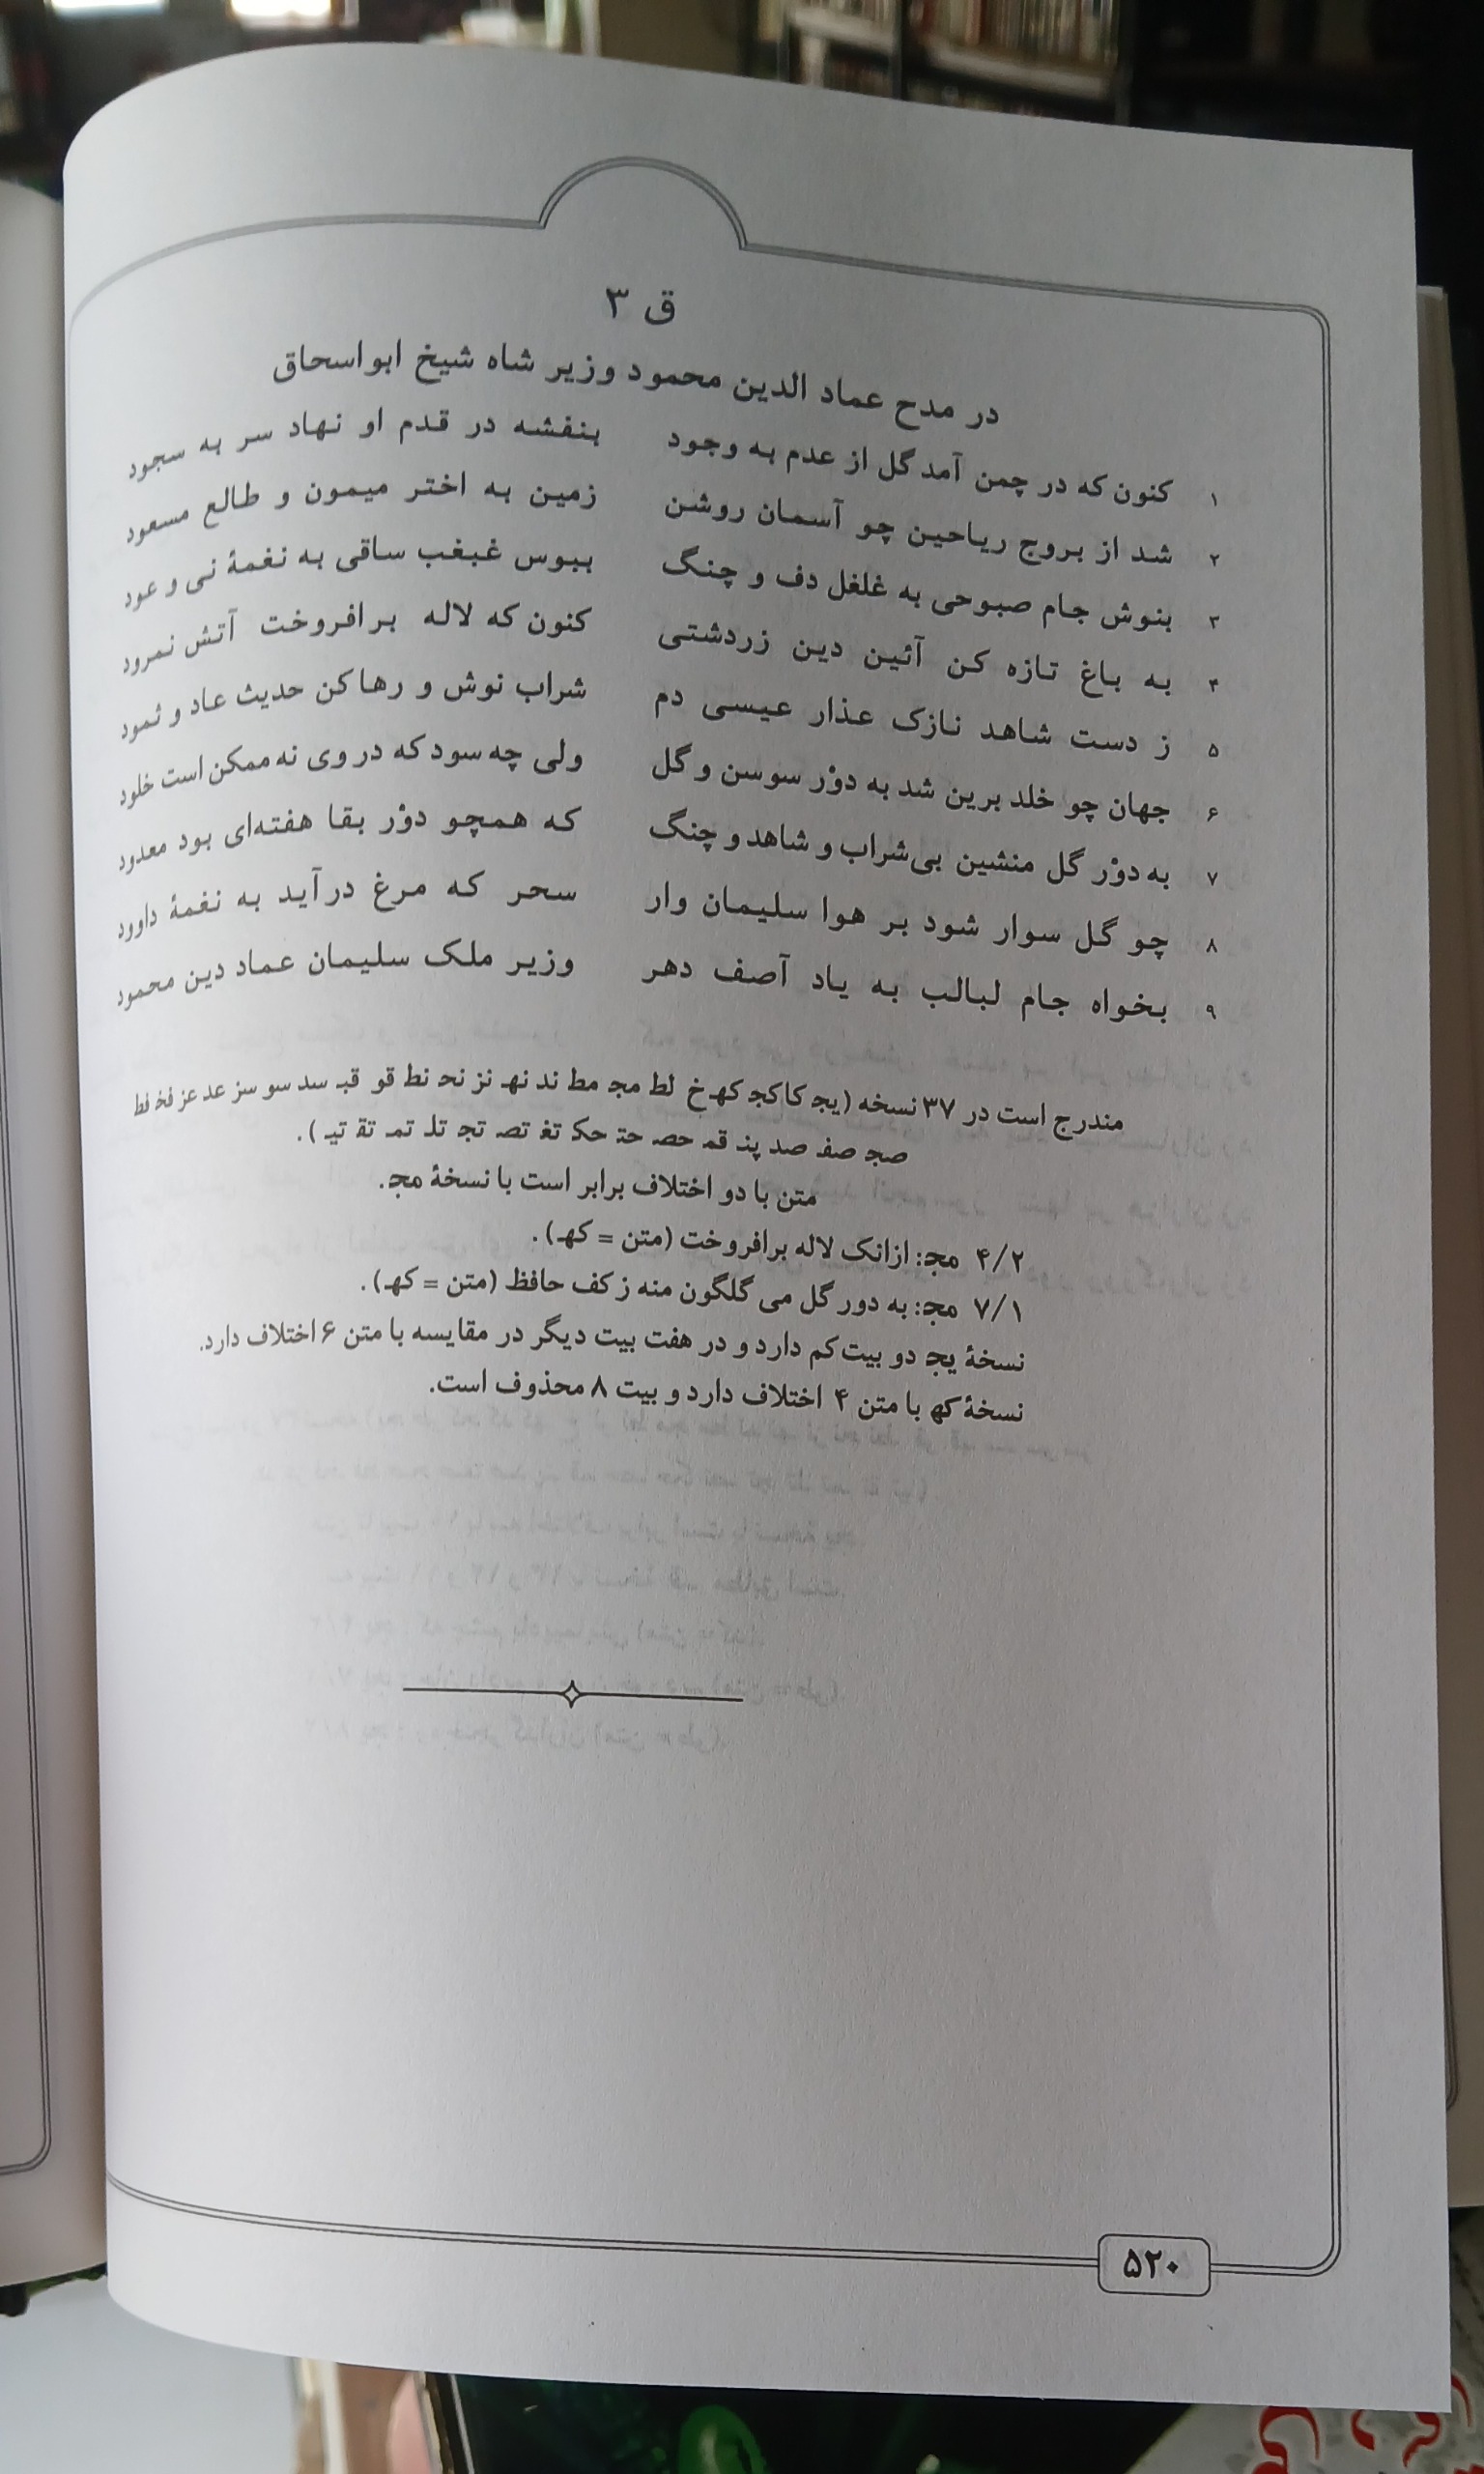 ق ۳
در مدح عماد الدین محمود وزیر شاه شیخ ابواسحاق
۱ کنون که در چمن آمد گل از عدم به وجود بنفشه در قدم او نهاد سر به سجود
۲ شد از بروج ریاحین چو آسمان روشن زمین به اختر میمون و طالع مسعود
۳ بنوش جام صبوحی به غلغل دف و چنگ ببوس غبغب ساقی به نغمهٔ نی و عود
۴ به باغ تازه کن آئین دین زردشتی کنون که لاله برافروخت آتش نمرود
۵ ز دست شاهد نازک عذار عیسی دم شراب نوش و رها کن حدیث عاد و ثمود
۶ جهان چو خلد برین شد به دوْر سوسن و گل ولی چه سود که در وی نه ممکن است خلود
۷ به دوْر گل منشین بی‌شراب و شاهد و چنگ که همچو دوْر بقا هفته‌ای بود معدود
۸ چو گل سوار شود بر هوا سلیمان وار سحر که مرغ درآید به نغمهٔ داوود
۹ بخواه جام لبالب به یاد آصف دهر وزیر ملک سلیمان عماد دین محمود
مندرج است در ۳۷ نسخه (یجـ کا کجـ کهـ خ لط مجـ مط ند نهـ نز نحـ نط قو قبـ سد سو سز عد عز فخـ فط
صجـ صفـ صد پنـ قمـ حصـ حتـ حکـ تغـ تصـ تجـ تلـ تمـ تقـ تیـ).
متن با دو اختلاف برابر است با نسخهٔ مجـ.
۴/۲ مجـ: ازانک لاله برافروخت (متن = کهـ).
۷/۱ مجـ: به دور گل می گلگون منه ز کف حافظ (متن = کهـ).
نسخهٔ یجـ دو بیت کم دارد و در هفت بیت دیگر در مقایسه با متن ۶ اختلاف دارد.
نسخهٔ کهـ با متن ۴ اختلاف دارد و بیت ۸ محذوف است.
۵۲۰